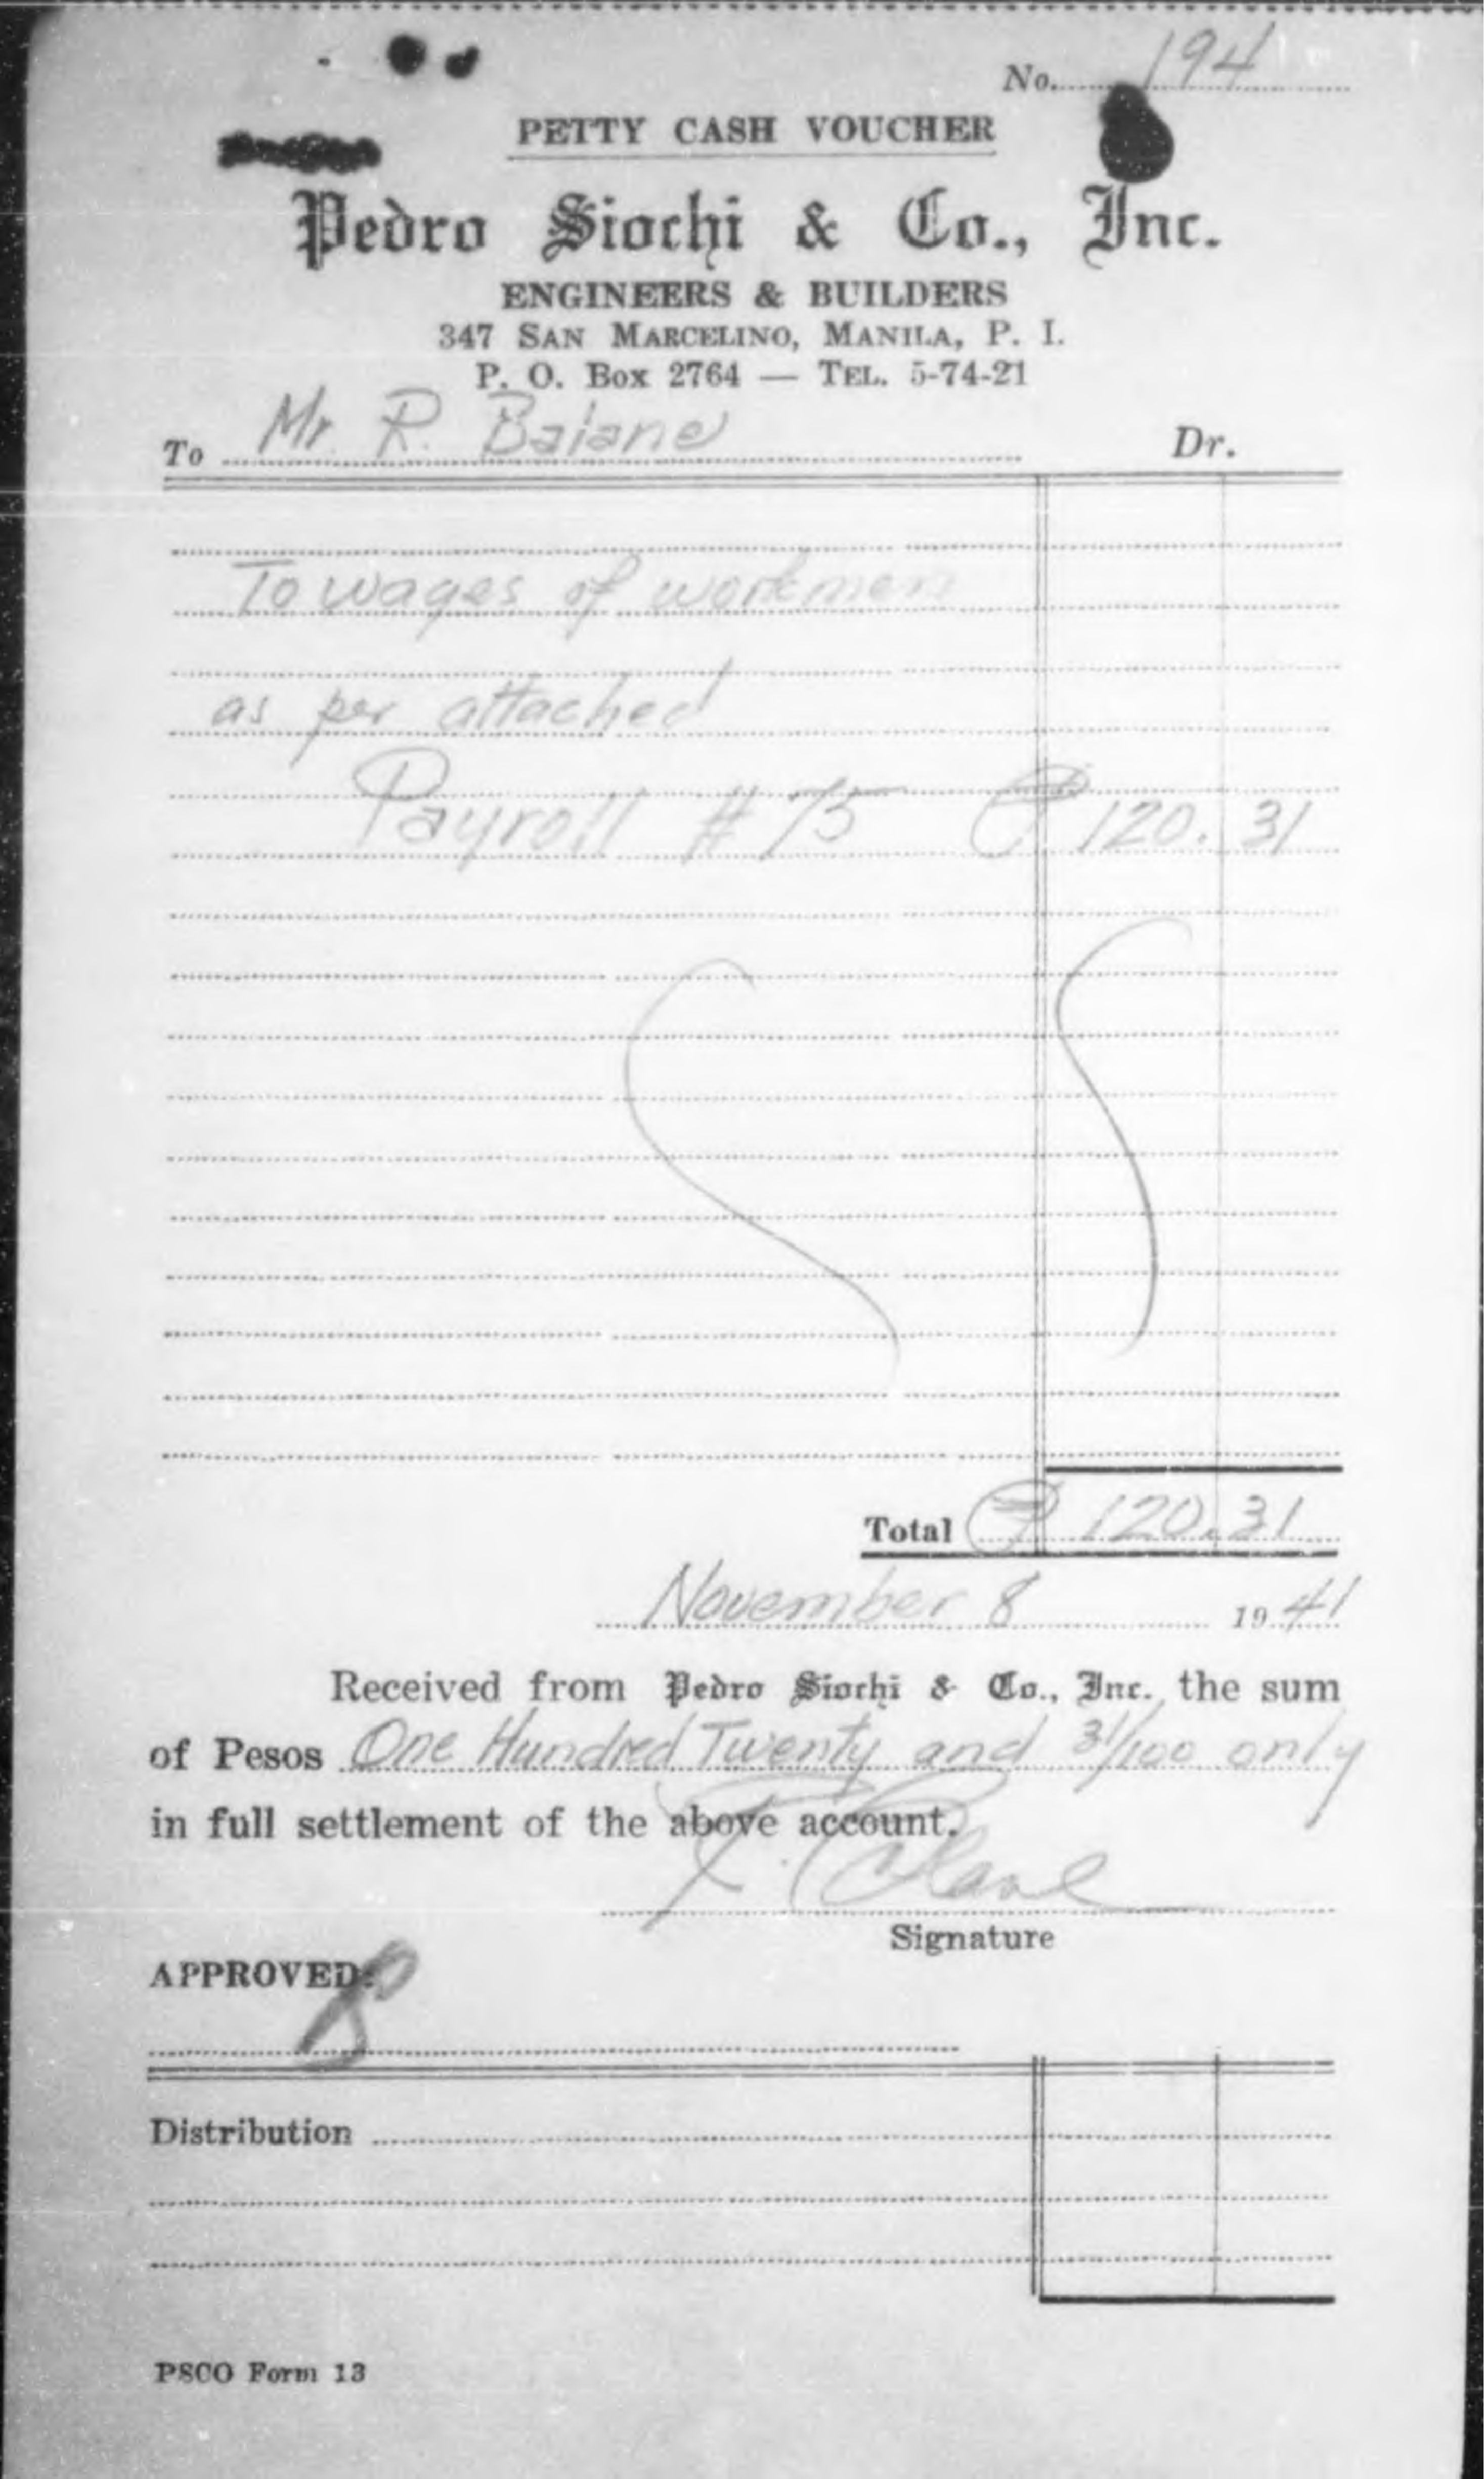 No. 194
PETTY CASH VOUCHER
Pedro Siochi & Co., Inc.
ENGINEERS & BUILDERS
347 SAN MARCELINO, MANILA, P. I.
P. O. Box 2764 — TEL. 5-74-21
To Mr. R. Baiane Dr.
To wages of workmen
as per attached
Payroll # 75 ₱ 120.31
Total ₱ 120.31
November 8 1941
Received from Pedro Siochi & Co., Inc., the sum
of Pesos One Hundred Twenty and 31/100 only
in full settlement of the above account.
Signature
APPROVED:
Distribution
PSCO Form 13